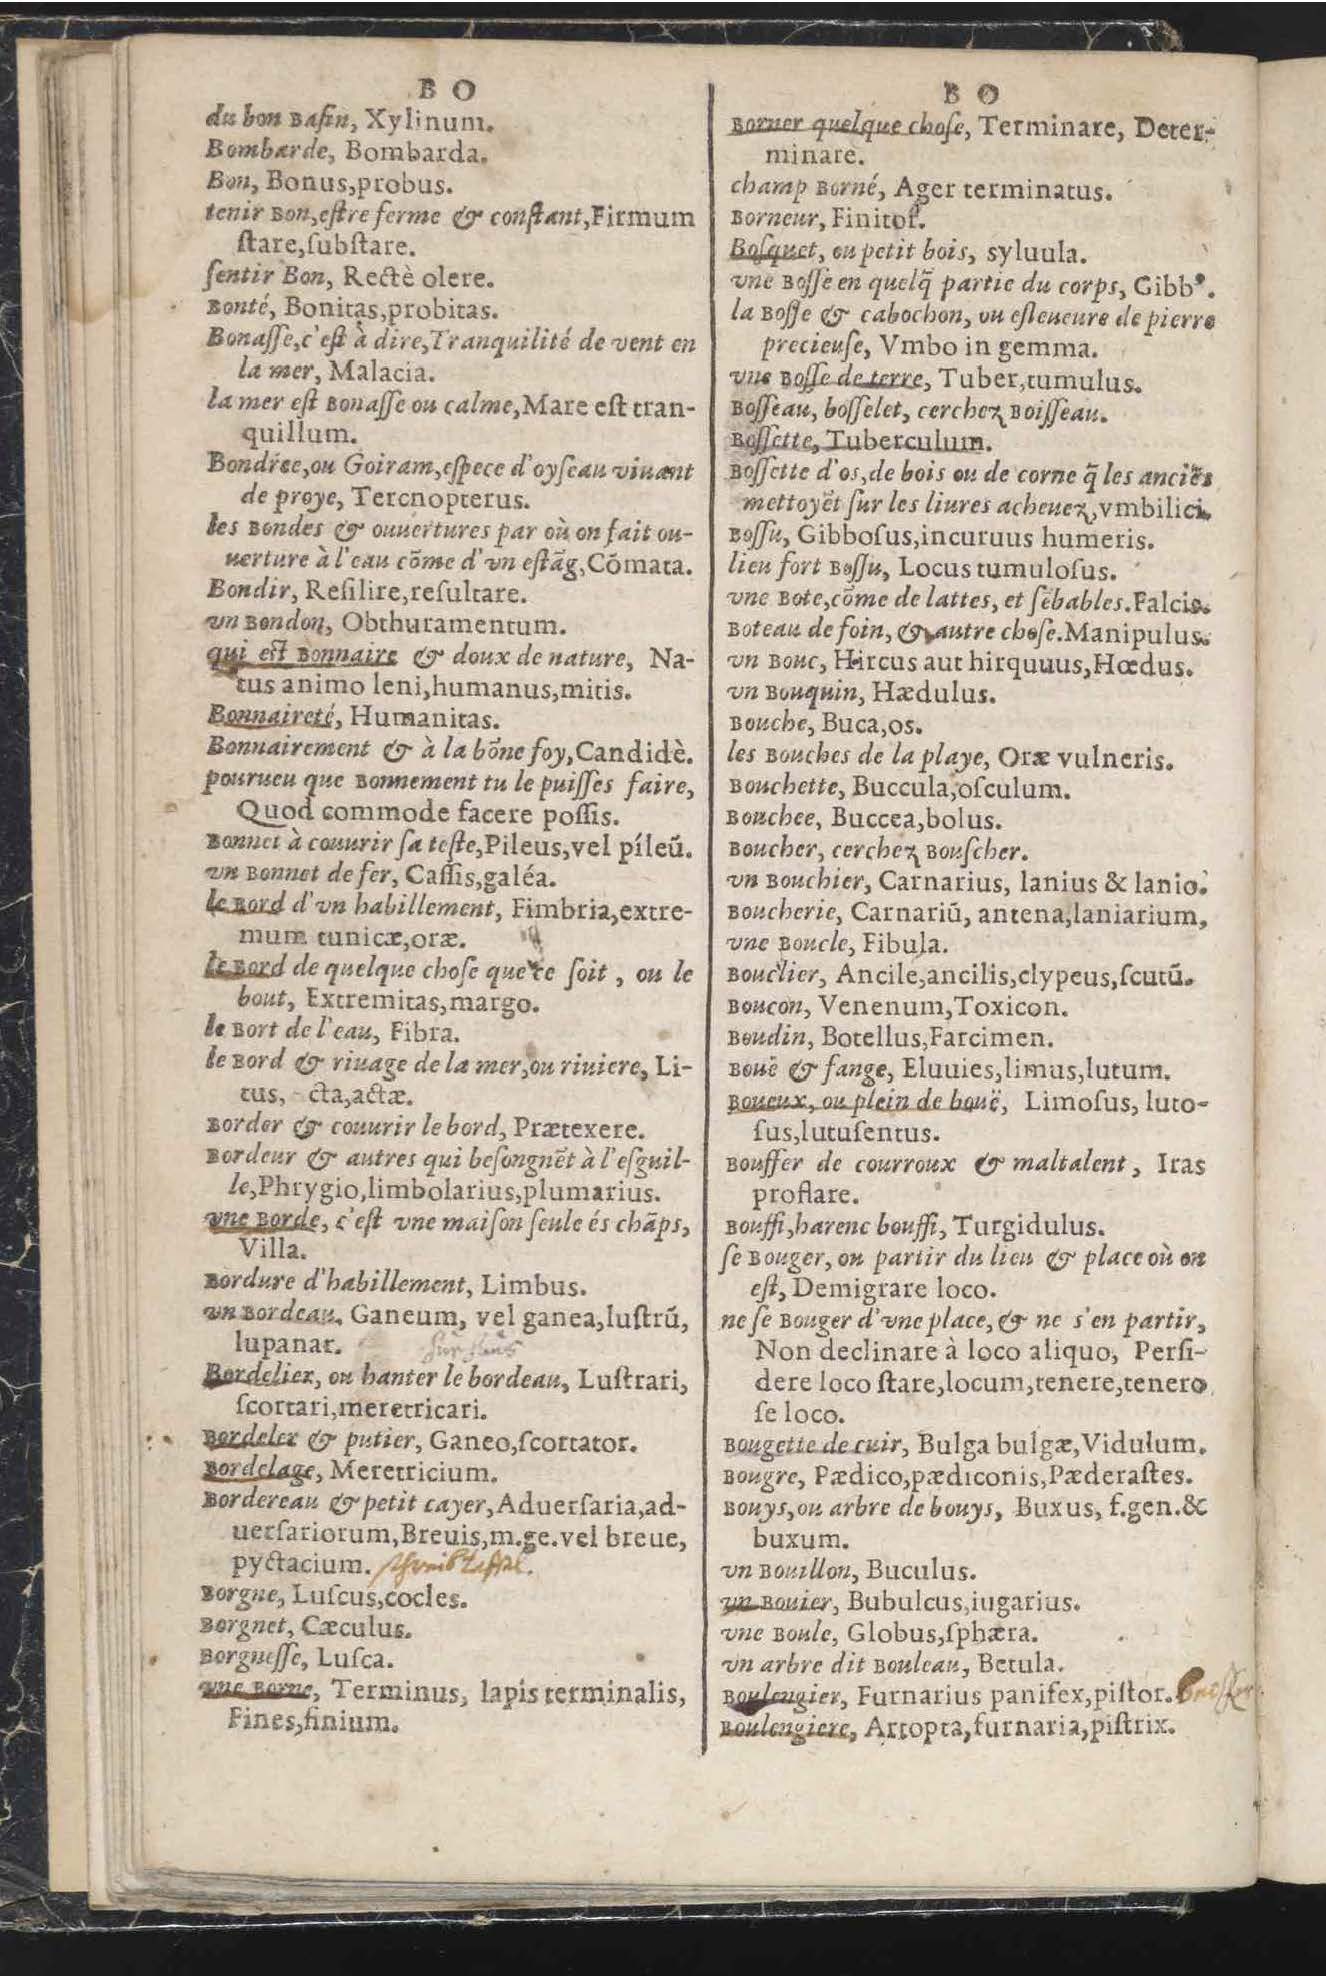 B O
du bon Baſin, Xylinum.
Bombarde, Bombarda.
Bon, Bonus,probus.
tenir Bon,eſtre ferme & conſtant,Firmum
ſtare,ſubſtare.
ſentir Bon, Rectè olere.
Bonté, Bonitas,probitas.
Bonaſſe,c'eſt à dire,Tranquilité de vent en
la mer, Malacia.
la mer eſt Bonaſſe ou calme,Mare eſt tran-
quillum.
Bondree,ou Goiram,eſpece d'oyſeau viuant
de proye, Tercnopterus.
les Bondes & ouuertures par où on fait ou-
uerture à l'eau cõme d'vn eſtãg,Cõmata.
Bondir, Reſilire,reſultare.
vn Bondon, Obthuramentum.
qui eſt Bonnaire & doux de nature, Na-
tus animo leni,humanus,mitis.
Bonnaireté, Humanitas.
Bonnairement & à la bõne foy,Candidè.
pourueu que Bonnement tu le puiſſes faire,
Quod commode facere poſſis.
Bonnet à couurir ſa teſte,Pileus,vel píleũ.
vn Bonnet de fer, Caſſis,galéa.
le Bord d'vn habillement, Fimbria,extre-
mum tunicæ,oræ.
le Bord de quelque choſe que ce ſoit, ou le
bout, Extremitas,margo.
le Bort de l'eau, Fibra.
le Bord & riuage de la mer,ou riuiere, Li-
tus, cta,actæ.
Border & couurir le bord, Prætexere.
Bordeur & autres qui beſongnẽt à l'eſguil-
le,Phrygio,limbolarius,plumarius.
vne Borde, c'eſt vne maiſon ſeule és chãps,
Villa.
Bordure d'habillement, Limbus.
vn Bordeau. Ganeum, vel ganea,luſtrũ,
lupanar.
Bordelier, ou hanter le bordeau, Luſtrari,
ſcortari,meretricari.
Bordeler & putier, Ganeo,ſcortator.
Bordelage, Meretricium.
Bordereau & petit cayer,Aduerſaria,ad-
uerſariorum,Breuis,m.ge.vel breue,
pyctacium.
Borgne, Luſcus,cocles.
Borgnet, Cæculus.
Borgneſſe, Luſca.
vne Borne, Terminus, lapis terminalis,
Fines,finium.
B O
Borner quelque choſe, Terminare, Deter-
minare.
champ Borné, Ager terminatus.
Borneur, Finitor.
Boſquet, ou petit bois, syluula.
vne Boſſe en quelq̃ partie du corps, Gibbꝰ.
la Boſſe & cabochon, ou eſleueure de pierre
precieuſe, Vmbo in gemma.
vne Boſſe de terre, Tuber,tumulus.
Boſſeau, boſſelet, cerchez Boiſſeau.
Boſſette, Tuberculum.
Boſſette d'os,de bois ou de corne q̃ les anciẽs
mettoyẽt ſur les liures acheuez,vmbilici.
Boſſu, Gibboſus,incuruus humeris.
lieu fort Boſſu, Locus tumuloſus.
vne Bote,cõme de lattes, et ſẽbables.Falcis.
Boteau de foin, & autre choſe.Manipulus.
vn Bouc, Hircus aut hirquuus,Hœdus.
vn Bouquin, Hædulus.
Bouche, Buca,os.
les Bouches de la playe, Oræ vulneris.
Bouchette, Buccula,oſculum.
Bouchee, Buccea,bolus.
Boucher, cerchez Bouſcher.
vn Bouchier, Carnarius, lanius & lanio.
Boucherie, Carnariũ, antena,laniarium,
vne Boucle, Fibula.
Bouclier, Ancile,ancilis,clypeus,ſcutũ.
Boucon, Venenum,Toxicon.
Boudin, Botellus,Farcimen.
Bouë & fange, Eluuies,limus,lutum.
Boueux, ou plein de bouë, Limoſus, luto-
ſus,lutuſentus.
Bouffer de courroux & maltalent, Iras
proflare.
Bouffi,harenc bouffi, Turgidulus.
ſe Bouger, ou partir du lieu & place où on
eſt, Demigrare loco.
ne ſe Bouger d'vne place, & ne s'en partir,
Non declinare à loco aliquo, Perſi-
dere loco ſtare,locum,tenere,tenero
ſe loco.
Bougette de cuir, Bulga bulgæ,Vidulum.
Bougre, Pædico,pædiconis,Pæderaſtes.
Bouys,ou arbre de bouys, Buxus, f.gen.&
buxum.
vn Bouillon, Buculus.
vn Bouier, Bubulcus,iugarius.
vne Boule, Globus,ſphæra.
vn arbre dit Bouleau, Betula.
Boulengier, Furnarius panifex,piſtor.
Boulengiere, Artopta,furnaria,piſtrix.